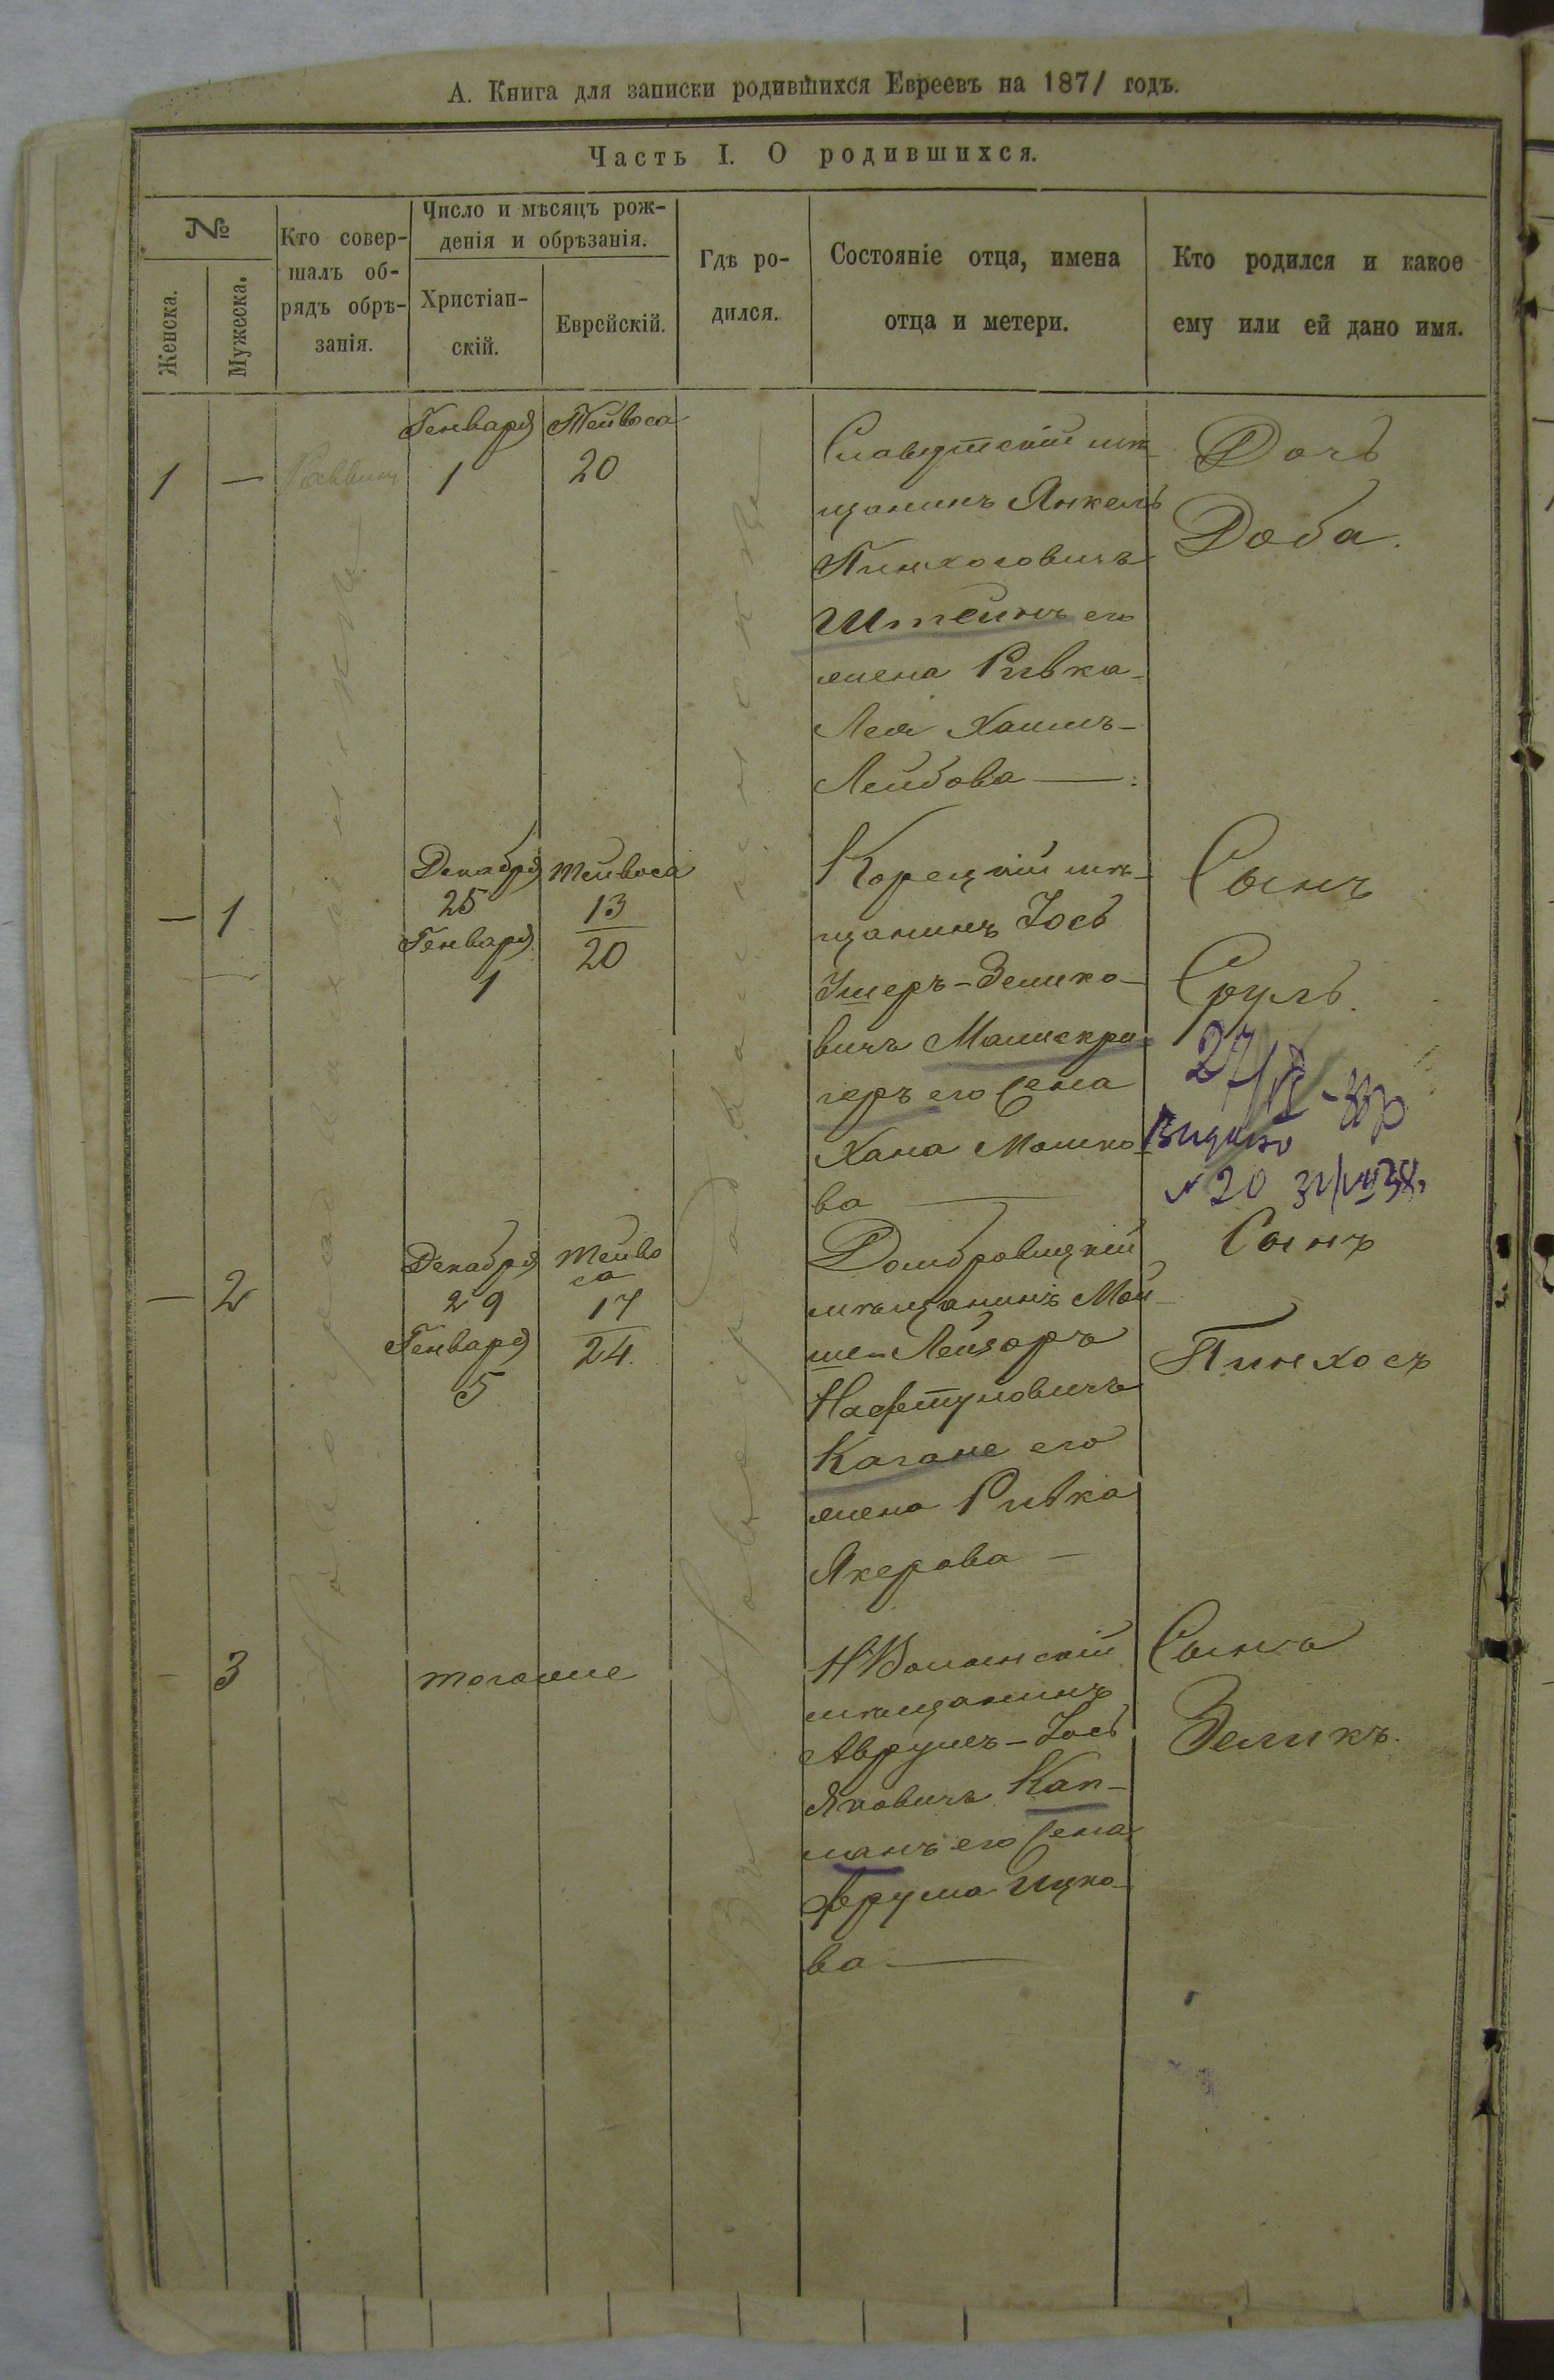 А. Книга для записки родившихся Евреевъ на 1871 годъ.
Часть I. О родившихся.
№
Женска.
Мужеска.
Кто совер-
шалъ об-
рядъ обрѣ-
занія.
Число и мѣсяцъ рож-
денія и обрѣзанія.
Христіан-
скій.
Еврейскій.
Гдѣ ро-
дился.
Состояніе отца, имена
отца и метери.
Кто родился и какое
ему или ей дано имя.
1
—
Раввинъ
Генваря
1
Тейвоса
20
Славутскій мѣ-
щанинъ Янкель
Пинхосовичъ
Штейнъ его
жена Ривка-
Лея Хаимъ-
Лейбова —
Дочь
Доба.
—
1
Декабря
25
Генваря
1
Тейвоса
13
20
Корецкій мѣ-
щанинъ Іось
Ушеръ-Зелико-
вичъ
геръ его жена
Хана Мошко-
ва —
Сынъ
Сруль.
27/
Видано
№ 20
—
2
Декабря
29
Генваря
5
Тейво
са
17
24.
Домбровицкій
мѣщанинъ Мой-
ше-Лейзоръ
Нафтуловичъ
Кагане его
жена Ривка
Якерова —
Сынъ
Пинхосъ
-
3
тогоже
НВолынскій
мѣщанинъ
Аврумъ-Іось
Яковичъ Кап-
ланъ его жена
Фрума Ицко-
ва —
Сынъ
Зеликъ.